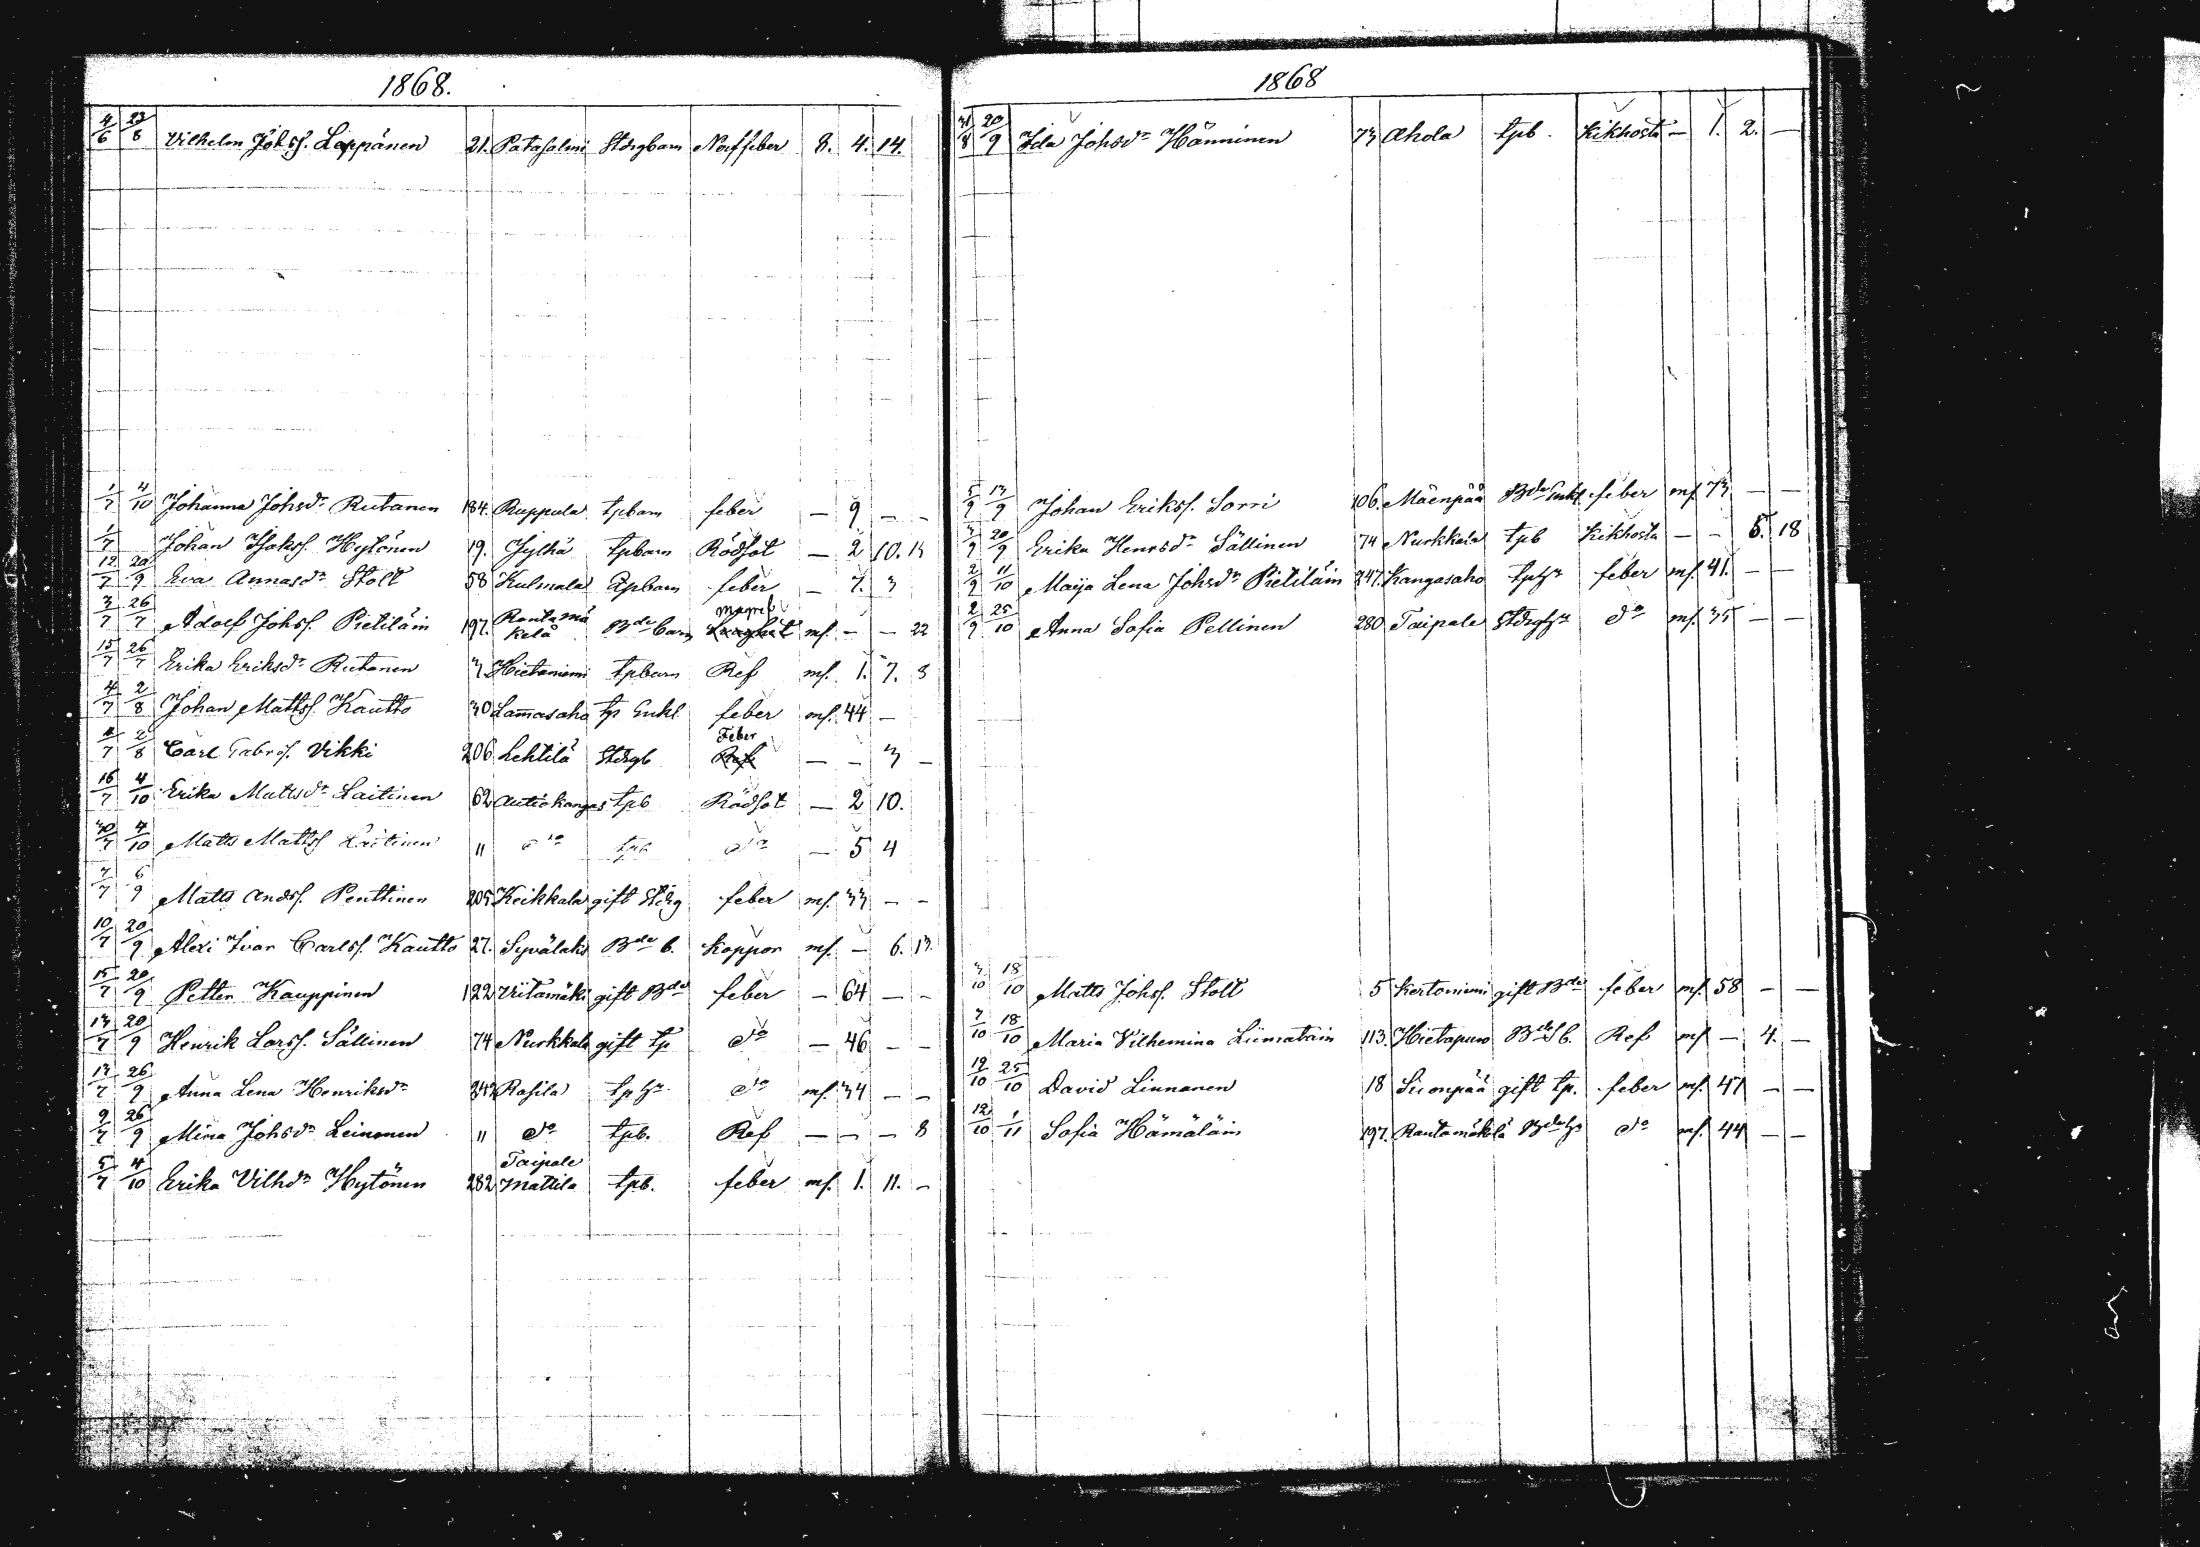 1868.
4/6 23/8 Vilhelm Johsf. Lappänen 21. Patasalmi Stdrgbarn Nerffeber 8. 4. 14.
1/7 4/10 Johanna Johsdr Rutanen 184. Ruppula tpbarn feber — 9 — —
1/7 Johan Isaksf. Hytönen 19. Jylhä tpbarn Rödsot — 2 10. 13
12/7 20/9 Eva Annasdr Stolt 58 Kulmala tpbarn feber — 7. 3
3/7 26/7 Adolf Johsf. Pietiläin 197. Rantamä kelä Bde barn mf. — — 22
15/7 26/7 Erika Eriksdr Rutanen 3 Hietaniemi tpbarn Ref mf. 1. 7. 3
4/7 2/8 Johan Mattsf. Kautto 30 Lamasaho tp Enkl feber mf. 44 —
2/8 Carl Gabrsf. Vikki 206 Lehtilä Stdrgb Feber Ref — — 3 —
16/7 4/10 Erika Mattsdr Laitinen 62 Autiokangas tpb Rödsot — 2 10.
30/7 4/10 Matts Mattsf Laitinen " do tpb do — 5 4
7/7 6/9 Matts Andsf. Penttinen 205 Keikkala gift Stdrg feber mf. 33 — —
10/7 20/9 Alexi Ivar Carlsf. Kautto 27. Syvälaks Bde b. Koppor mf. — 6. 13.
15/7 20/9 Petter Kauppinen 122 Viitamäki gift Bde feber — 64 — —
13/7 20/9 Henrik Larsf. Sällinen 74 Nurkkala gift tp do — 46 — —
13/7 26/9 Anna Lena Henriksdr 242 Rasila tp hu do mf. 34 — —
9/7 26/9 Mina Johsdr Leinonen " do tpb. Ref — — — 8
5/7 4/10 Erika Vilhdr Hytönen 282 Taipale Mattila tpb. feber mf. 1. 11. —
1868
31/8 20/9 Ida Johsdr Hänninen 73 Ahola tpb. Kikhosta — 1. 2. —
5/9 13/9 Johan Eriksf. Sorri 106. Mäenpää Bde Enkl feber mf 73 — —
3/9 20/9 Erika Henrsdr Sällinen 74 Nurkkala tpb Kikhosta — — 5. 18
2/9 11/10 Maija Lena Johsdr Pietiläin 247. Kangasaho tp hu feber mf. 41. — —
2/9 25/10 Anna Sofia Pellinen 280 Taipale Stdrg hu do mf. 35 — —
3/10 18/10 Matts Johsf. Stolt 5 Kertoniemi gift Bde feber mf. 58 — —
7/10 18/10 Maria Vilhemina Liimatain 113. Hietapuro Bde b. Ref mf — 4. —
12/10 25/10 David Linnanen 18 Suonpää gift tp. feber mf. 47 — —
12/10 1/11 Sofia Hämäläin 197. Rautamäklä Bde hu do mf. 44 — —